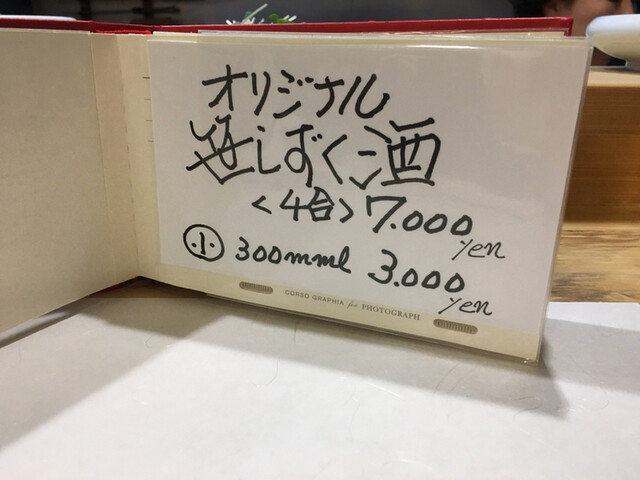 オリジナル
笹しずく酒
<4合> 7.000
yen
小 300mml 3.000
yen
CORSO GRAPHIA for PHOTOGRAPH